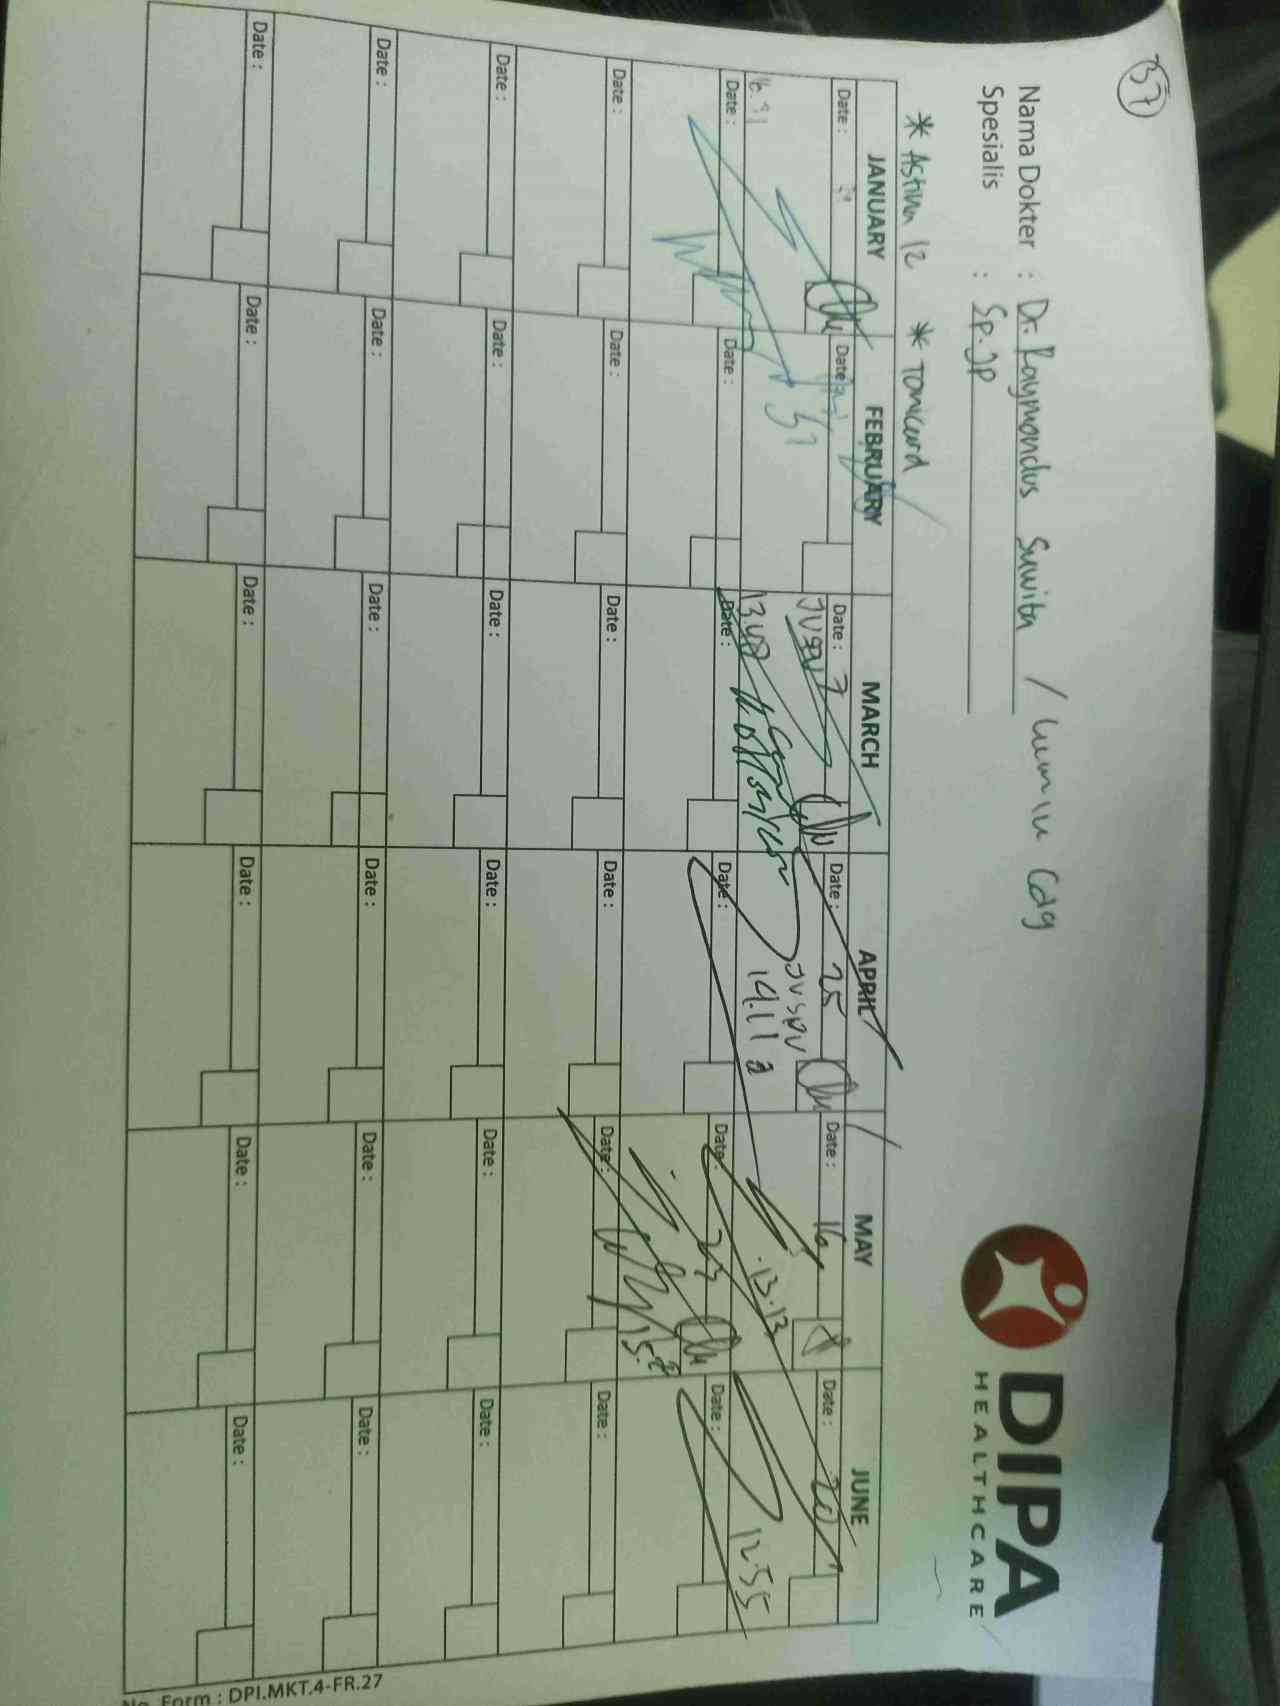 37
DIPA
HEALTHCARE
Nama Dokter : Dr. Raymondus Suwita /
Spesialis : Sp.JP
* Astina 12 * Tonicard
JANUARY FEBRUARY MARCH APRIL MAY JUNE
Date : Date : Date : 7 Date : 25 Date : 16 Date : 20
JVSPV 13.48 JVSPV 14.11 13.13 12.55
Date : Date : Date : Date : Date : 23 Date :
Date : Date : Date : Date : Date : Date :
Date : Date : Date : Date : Date : Date :
Date : Date : Date : Date : Date : Date :
Date : Date : Date : Date : Date : Date :
No. Form : DPI.MKT.4-FR.27